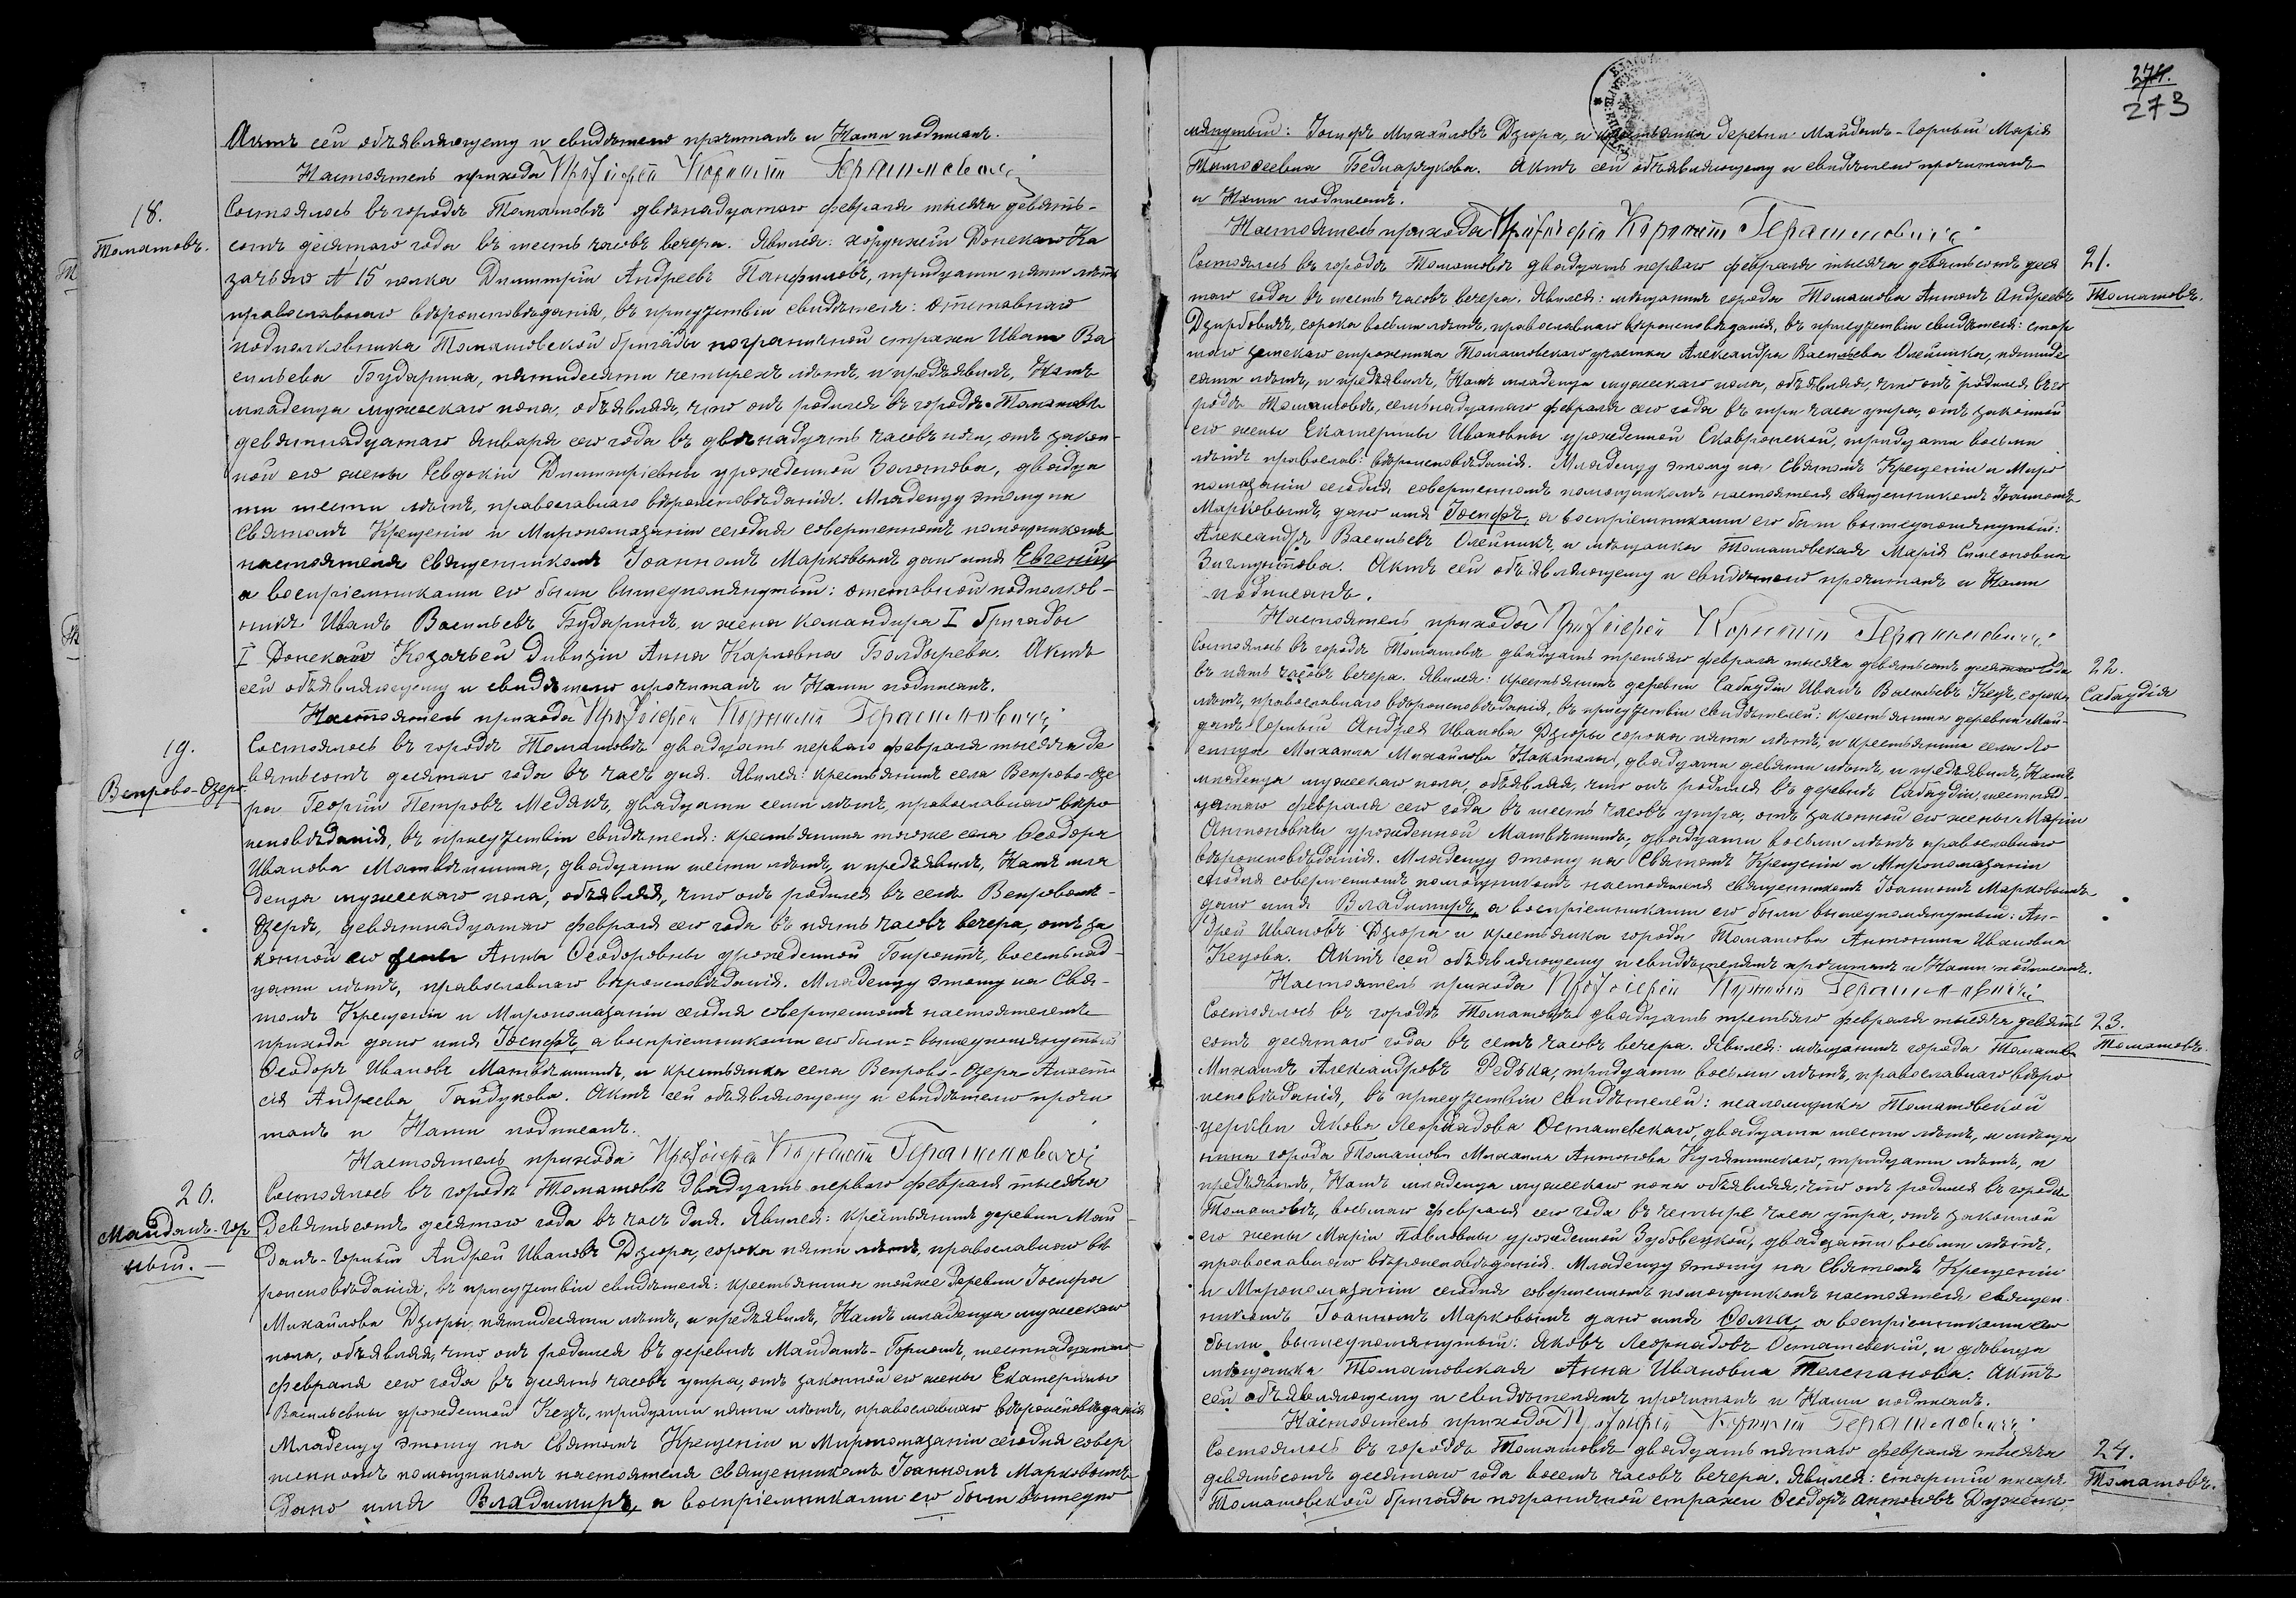 Актъ сей объявляющему и свидѣтелю прочитанъ и Нами подписанъ.
Настоятель прихода Протоіерей Корнилій Герасимовичъ
18.
Томашовъ.
Состоялось въ городѣ Томашовѣ двѣнадцатаго февраля тысяча девять-
сотъ десятаго года въ шесть часовъ вечера. Явился: хорунжій Донскаго Ка
зачьяго № 15 полка Димитрій Андреевъ Панфиловъ, тридцати пяти лѣтъ
православнаго вѣроисповѣданія, въ присутствіи свидѣтеля: отставнаго
подполковника Томашовской бригады пограничной стражи Ивана Ва
сильева Бударина, пятидесяти четырехъ лѣтъ, и предъявилъ, Намъ
младенца мужескаго пола, объявляя, что онъ родился въ городѣ Томашовѣ
девятнадцатаго Января сего года въ двѣнадцать часовъ ночи, отъ закон-
ной его жены Евдокіи Димитріевны урожденной Золотова, двадца
ти шести лѣтъ, православнаго вѣроисповѣданія. Младенцу этому на
Святомъ Крещеніи и Миропомазаніи сегодня совершенномъ помощникомъ
настоятеля священникомъ Іоанномъ Марковымъ дано имя Евгеній,
а воспріемниками его были вышеупомянутый: отставной подполков-
никъ Иванъ Васильевъ Бударинъ, и жена командира I бригады
I Донской Козачьей дивизіи Анна Карловна Болдырева. Актъ
сей объявляющему и свидѣтелю прочитанъ и Нами подписанъ.
Настоятель прихода Протоіерей Корнилій Герасимовичъ
19.
Вепрово-Озеро
Состоялось въ городѣ Томашовѣ двадцать перваго февраля тысяча де
вятьсотъ десятаго года въ часъ дня. Явился: крестьянинъ села Вепрово-Озе
ра Георгій Петровъ Медякъ, двадцати семи лѣтъ, православнаго вѣро
исповѣданія, въ присутствіи свидѣтеля: крестьянина тогоже села Ѳеодора
Иванова Матвѣишина, двадцати шести лѣтъ, и предъявилъ, Намъ мла
денца мужескаго пола, объявляя, что онъ родился въ селѣ Вепровомъ-
Озерѣ, девятнадцатаго февраля сего года въ пять часовъ вечера, отъ за
конной его жены Анны Ѳеодоровны урожденной Биронтъ, восемнад-
цати лѣтъ, православнаго вѣроисповѣданія. Младенцу этому на Свя-
томъ Крещеніи и Миропомазаніи сегодня совершенномъ настоятелемъ
прихода дано имя Іосифъ, а воспріемниками его были вышеупомянутый
Ѳеодоръ Ивановъ Матвѣишинъ, и крестьянка села Вепрово-Озера Анаста
сія Андреева Гайдукова. Актъ сей объявляющему и свидѣтелю прочи
танъ и Нами подписанъ.
Настоятель прихода Протоіерей Корнилій Герасимовичъ
20.
Майданъ-Гор
ный.
Состоялось въ городѣ Томашовѣ двадцать перваго февраля тысяча
девятьсотъ десятаго года въ часъ дня. Явился: крестьянинъ деревни Май
данъ-Горный Андрей Ивановъ Дзюра, сорока пяти лѣтъ, православнаго вѣ
роисповѣданія, въ присутствіи свидѣтеля: крестьянина тойже деревни Іосифа
Михайлова Дзюры, пятидесяти лѣтъ, и предъявилъ, Намъ младенца мужескаго
пола, объявляя, что онъ родился въ деревнѣ Майданъ-Горномъ, шестнадцатаго
февраля сего года въ десять часовъ утра, отъ законной его жены Екатерины
Васильевны урожденной Кецъ, тридцати пяти лѣтъ, православнаго вѣроисповѣданія
Младенцу этому на Святомъ Крещеніи и Миропомазаніи сегодня совер
шенномъ помощникомъ настоятеля священникомъ Іоанномъ Марковымъ
Дано имя Владиміръ, а воспріемниками его были вышеупо
274.
273
мянутый: Іосифъ Михайловъ Дзюра, и крестьянка деревни Майданъ-Горный Марія
Тимоѳеевна Беднарчукова. Актъ сей объявляющему и свидѣтелю прочитанъ
и Нами подписанъ.
Настоятель прихода Протоіерей Корнилій Герасимовичъ
21.
Томашовъ.
Состоялось въ городѣ Томашовѣ двадцать перваго февраля тысяча девятьсотъ деся
таго года въ шесть часовъ вечера. Явился: мѣщанинъ города Томашова Антонъ Андреевъ
Дзирбовичъ, сорока восьми лѣтъ, православнаго вѣроисповѣданія, въ присутствіи свидѣтеля: стар
шаго земскаго стражника Томашовскаго участка Александра Васильева Олейника, пятиде
сяти лѣтъ, и предъявилъ, Намъ младенца мужескаго пола, объявляя, что онъ родился въ го
родѣ Томашовѣ, семнадцатаго февраля сего года въ три часа утра, отъ законной
его жены Екатерины Ивановны урожденной Скавронской, тридцати восьми
лѣтъ православ: вѣроисповѣданія. Младенцу этому на Святомъ Крещеніи и Миро
помазаніи сегодня совершенномъ помощникомъ настоятеля священникомъ Іоанномъ
Марковымъ, дано имя Іосифъ, а воспріемниками его были вышеупомянутый:
Александръ Васильевъ Олейникъ, и мѣщанка Томашовская Марія Симеоновна
Актъ сей объявляющему и свидѣтелю прочитанъ и Нами
подписанъ.
Настоятель прихода Протоіерей Корнилій Герасимовичъ
22.
Сабаудія
Состоялось въ городѣ Томашовѣ двадцать третьяго февраля тысяча девятьсотъ десятаго года
въ пять часовъ вечера. Явился: крестьянинъ деревни Сабаудіи Иванъ Васильевъ Кецъ, сорока
лѣтъ, православнаго вѣроисповѣданія, въ присутствіи свидѣтелей: крестьянина деревни Май-
данъ Горный Андрея Иванова Дзюры сорока пяти лѣтъ, и крестьянина села Ло
синца Михаила Михайлова Накапалы, двадцати девяти лѣтъ, и предъявилъ, Намъ
младенца мужескаго пола, объявляя, что онъ родился въ деревнѣ Сабаудіи, шестнад-
цатаго февраля сего года въ шесть часовъ утра, отъ законной его жены Маріи
Антоновны урожденной Матвѣишинъ, двадцати восьми лѣтъ православнаго
вѣроисповѣданія. Младенцу этому на Святомъ Крещеніи и Миропомазаніи
сегодня совершенномъ помощникомъ настоятеля священникомъ Іоанномъ Марковымъ
дано имя Владиміръ, а воспріемниками его были вышеупомянутый: Ан-
дрей Ивановъ Дзюра и крестьянка города Томашова Антонина Ивановна
Кецова. Актъ сей объявляющему и свидѣтелямъ прочитанъ и Нами подписанъ.
Настоятель прихода Протоіерей Корнилій Герасимовичъ
23.
Томашовъ.
Состоялось въ городѣ Томашовѣ двадцать третьяго февраля тысяча девять
сотъ десятаго года въ семь часовъ вечера. Явился: мѣщанинъ города Томашова
Михаилъ Александровъ Редька, тридцати восьми лѣтъ, православнаго вѣро
исповѣданія, въ присутствіи свидѣтелей: псаломщика Томашовской
церкви Якова Леорнадова Осташевскаго, двадцати шести лѣтъ, и мѣща
нина города Томашова Михаила Антонова Кулятинскаго, тридцати лѣтъ, и
предъявилъ, Намъ младенца мужескаго пола объявляя, что онъ родился въ городѣ
Томашовѣ, восьмаго февраля сего года въ четыре часа утра, отъ законной
его жены Маріи Павловны урожденной Зубовецкой, двадцати восьми лѣтъ,
православнаго вѣроисповѣданія. Младенцу этому на Святомъ Крещеніи
и Миропомазаніи сегодня совершенномъ помощникомъ настоятеля священ
никомъ Іоанномъ Марковымъ дано имя Ѳома, а воспріемниками его
были вышеупомянутый: Яковъ Леорнадовъ Осташевскій, и вдовица
мѣщанка Томашовская Анна Ивановна Телепанова. Актъ
сей объявляющему и свидѣтелямъ прочитанъ и Нами подписанъ.
Настоятель прихода Протоіерей Корнилій Герасимовичъ
24.
Томашовъ.
Состоялось въ городѣ Томашовѣ двадцать пятаго февраля тысяча
девятьсотъ десятаго года восемь часовъ вечера. Явился: старшій писарь
Томашовской бригады пограничной стражи Ѳеодоръ Антоновъ Дуженко